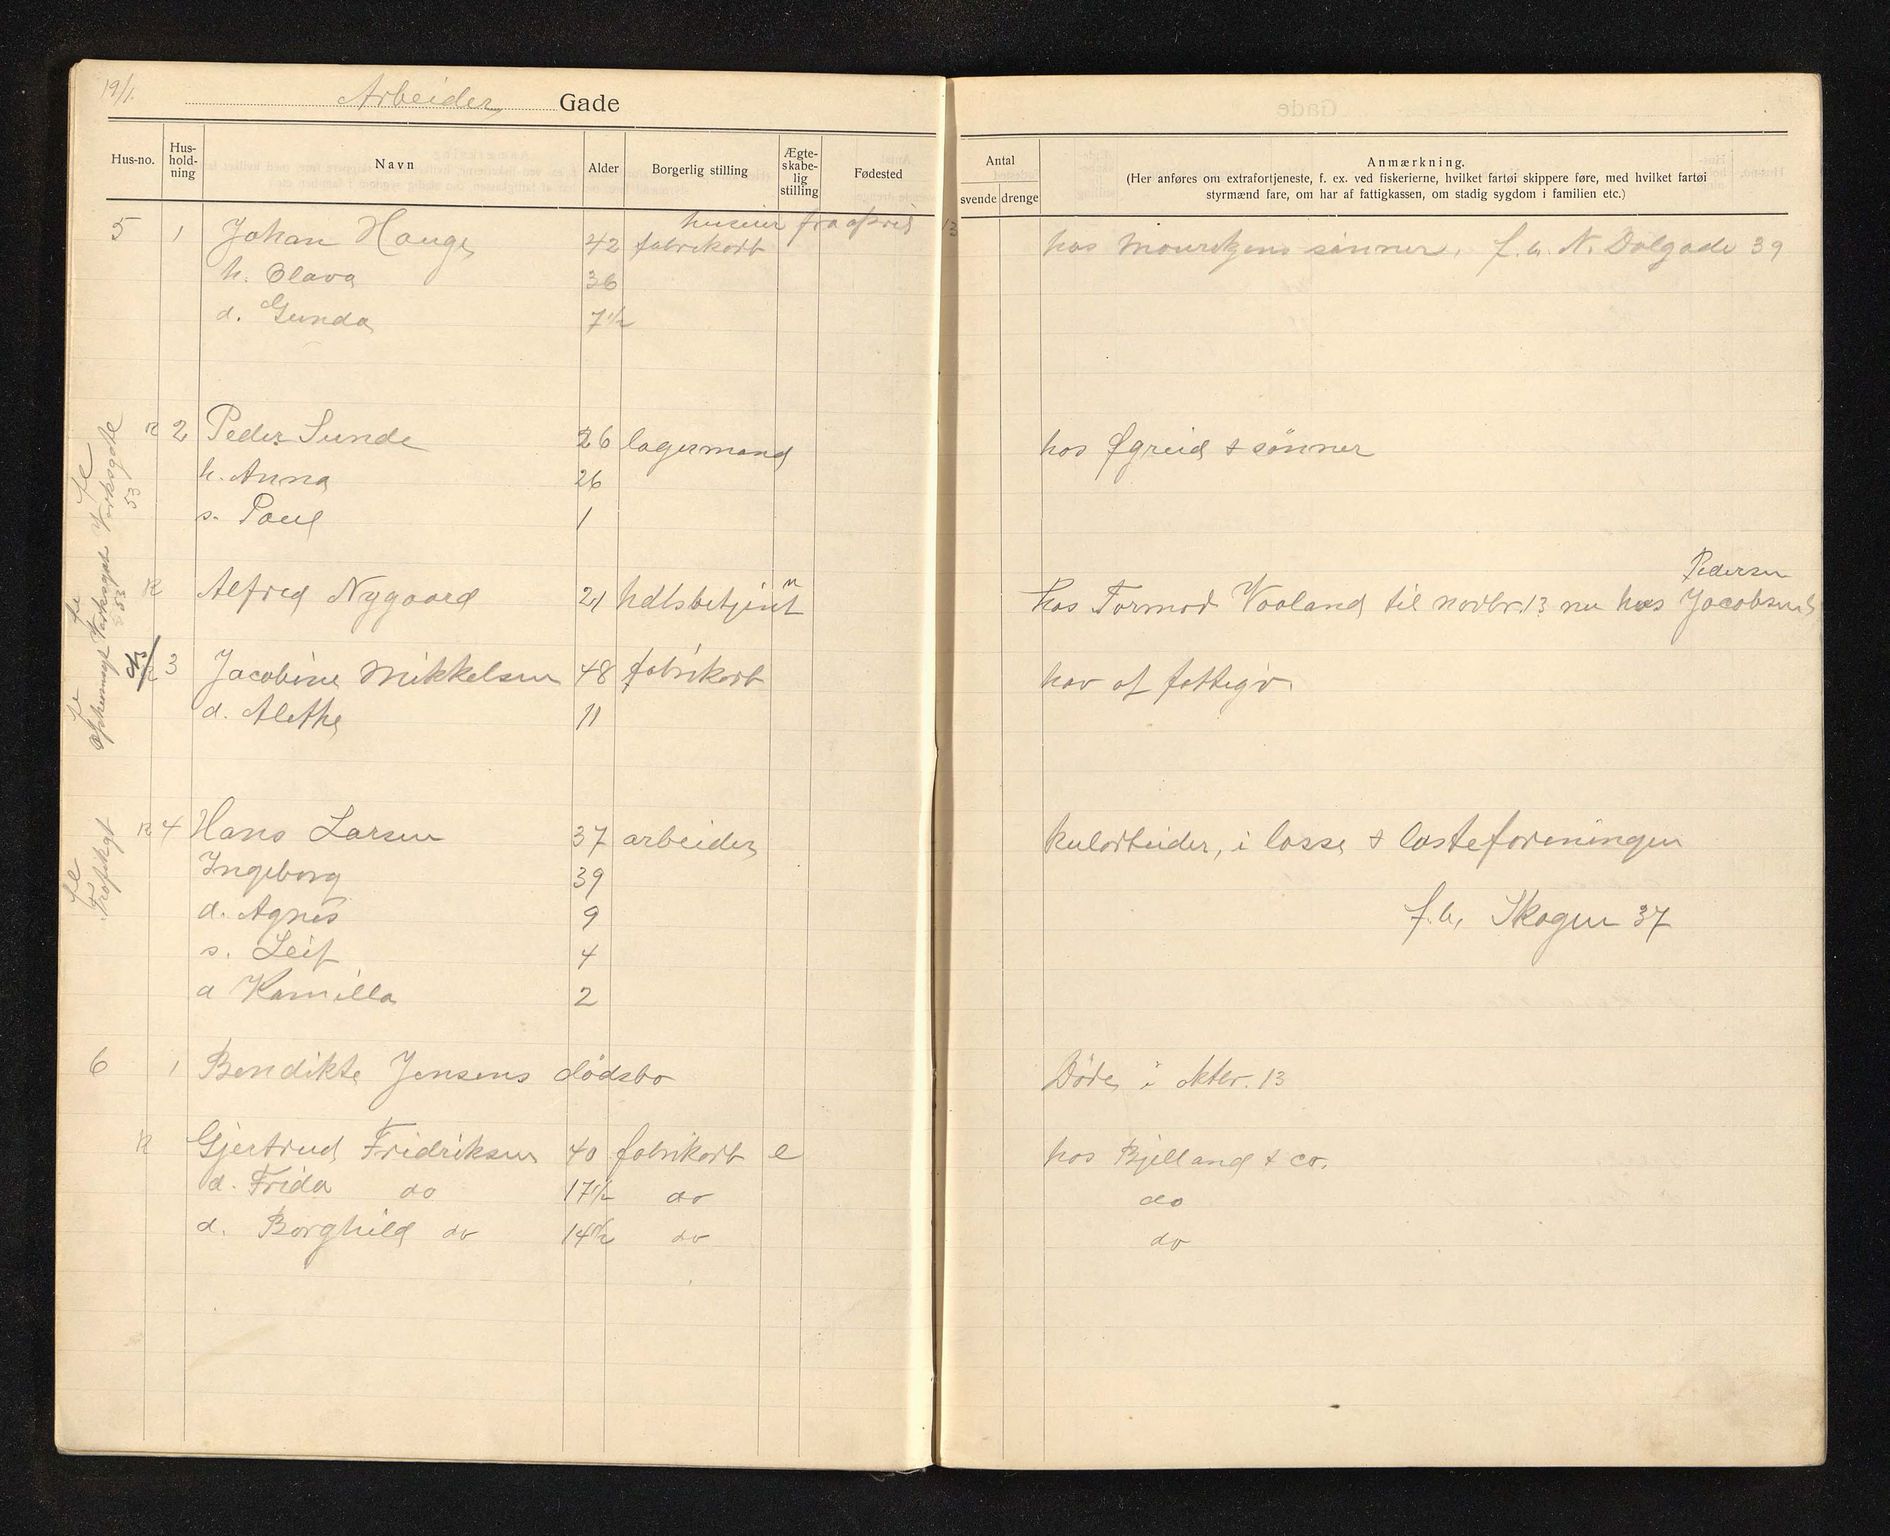 19/1.
Arbeider Gade
Hus-no. Hus-hold-ning Navn Alder Borgerlig stilling Ægte-skabe-lig stilling Fødested
Antal svende drenge
Anmærkning.
(Her anføres om extrafortjeneste, f. ex. ved fiskerierne, hvilket fartøi skippere føre, med hvilket fartøi
styrmænd fare, om har af fattigkassen, om stadig sygdom i familien etc.)
huseier fra april 13
5 1 Johan Hauge 42 fabrikarb hos Mouritzens sønner. f.b. N. Dalgade 39
h. Olava 36
d. Gunda 7 1/2
R 2 Peder Sunde 26 lagermand hos Øgreid & sønner
h. Anna 26
s. Paul 1
Pedersen
R Alfred Nygaard 21 hdlsbetjent hos Tormod Vaaland til novbr. 13 nu hos Jacobsens
R 3 Jacobine Mikkelsen 48 fabrikarb hav af fattigv.
d. Alethe 11
R 4 Hans Larsen 37 arbeider kularbeider, i losse & lasteforeningen
Ingeborg 39
d. Agnes 9 f.b. Skagen 37
s. Leif 4
d Kamilla 2
6 1 Bendikte Jensens dødsbo Døde i oktbr. 13
R Gjertrud Fridriksen 40 fabrikarb e hos Bjelland & co.
d. Frida do 17 1/2 do do
d. Borghild do 14 1/2 do do
fl Verksgate 53
fl Verksgat 53
fl
fl